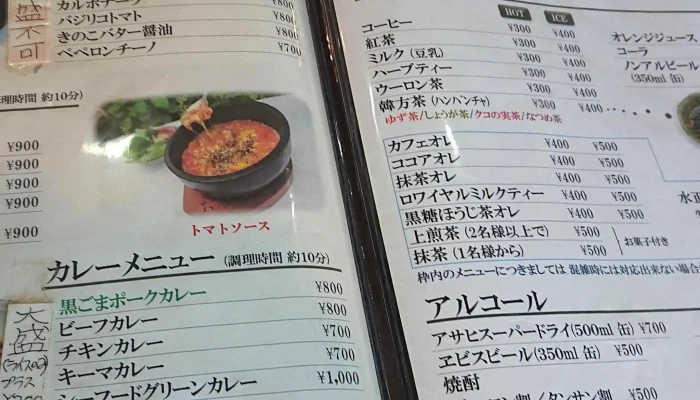 大盛不可
カルボナーラ ¥800
バジリコトマト ¥800
きのこバター醤油 ¥800
ペペロンチーノ ¥700
理時間 約10分)
¥900
¥900
¥900
¥900
¥900
トマトソース
カレーメニュー (調理時間 約10分)
黒ごまポークカレー ¥800
ビーフカレー ¥800
チキンカレー ¥700
キーマカレー ¥700
シーフードグリーンカレー ¥1,000
大盛
(ライスのみ)
プラス
HOT ICE
コーヒー ¥300 ¥400
紅茶 ¥300 ¥400
ミルク (豆乳) ¥300 ¥400
ハーブティー ¥300 ¥400
ウーロン茶 ¥300 ¥400
韓方茶 (ハンバンチャ) ¥300 ¥400
ゆず茶/しょうが茶/クコの実茶/なつめ茶
カフェオレ ¥400 ¥500
ココアオレ ¥400 ¥500
抹茶オレ ¥400 ¥500
ロワイヤルミルクティー ¥400 ¥500
黒糖ほうじ茶オレ ¥400 ¥500
上煎茶 (2名様以上で) ¥500
抹茶 (1名様から) ¥500
お菓子付き
枠内のメニューにつきましては 混雑時には対応出来ない場合
オレンジジュース
コーラ
ノンアルビール
(350ml 缶)
水正
アルコール
アサヒスーパードライ(500ml 缶) ¥700
ヱビスビール(350ml 缶) ¥500
焼酎
タンサン割 ¥500